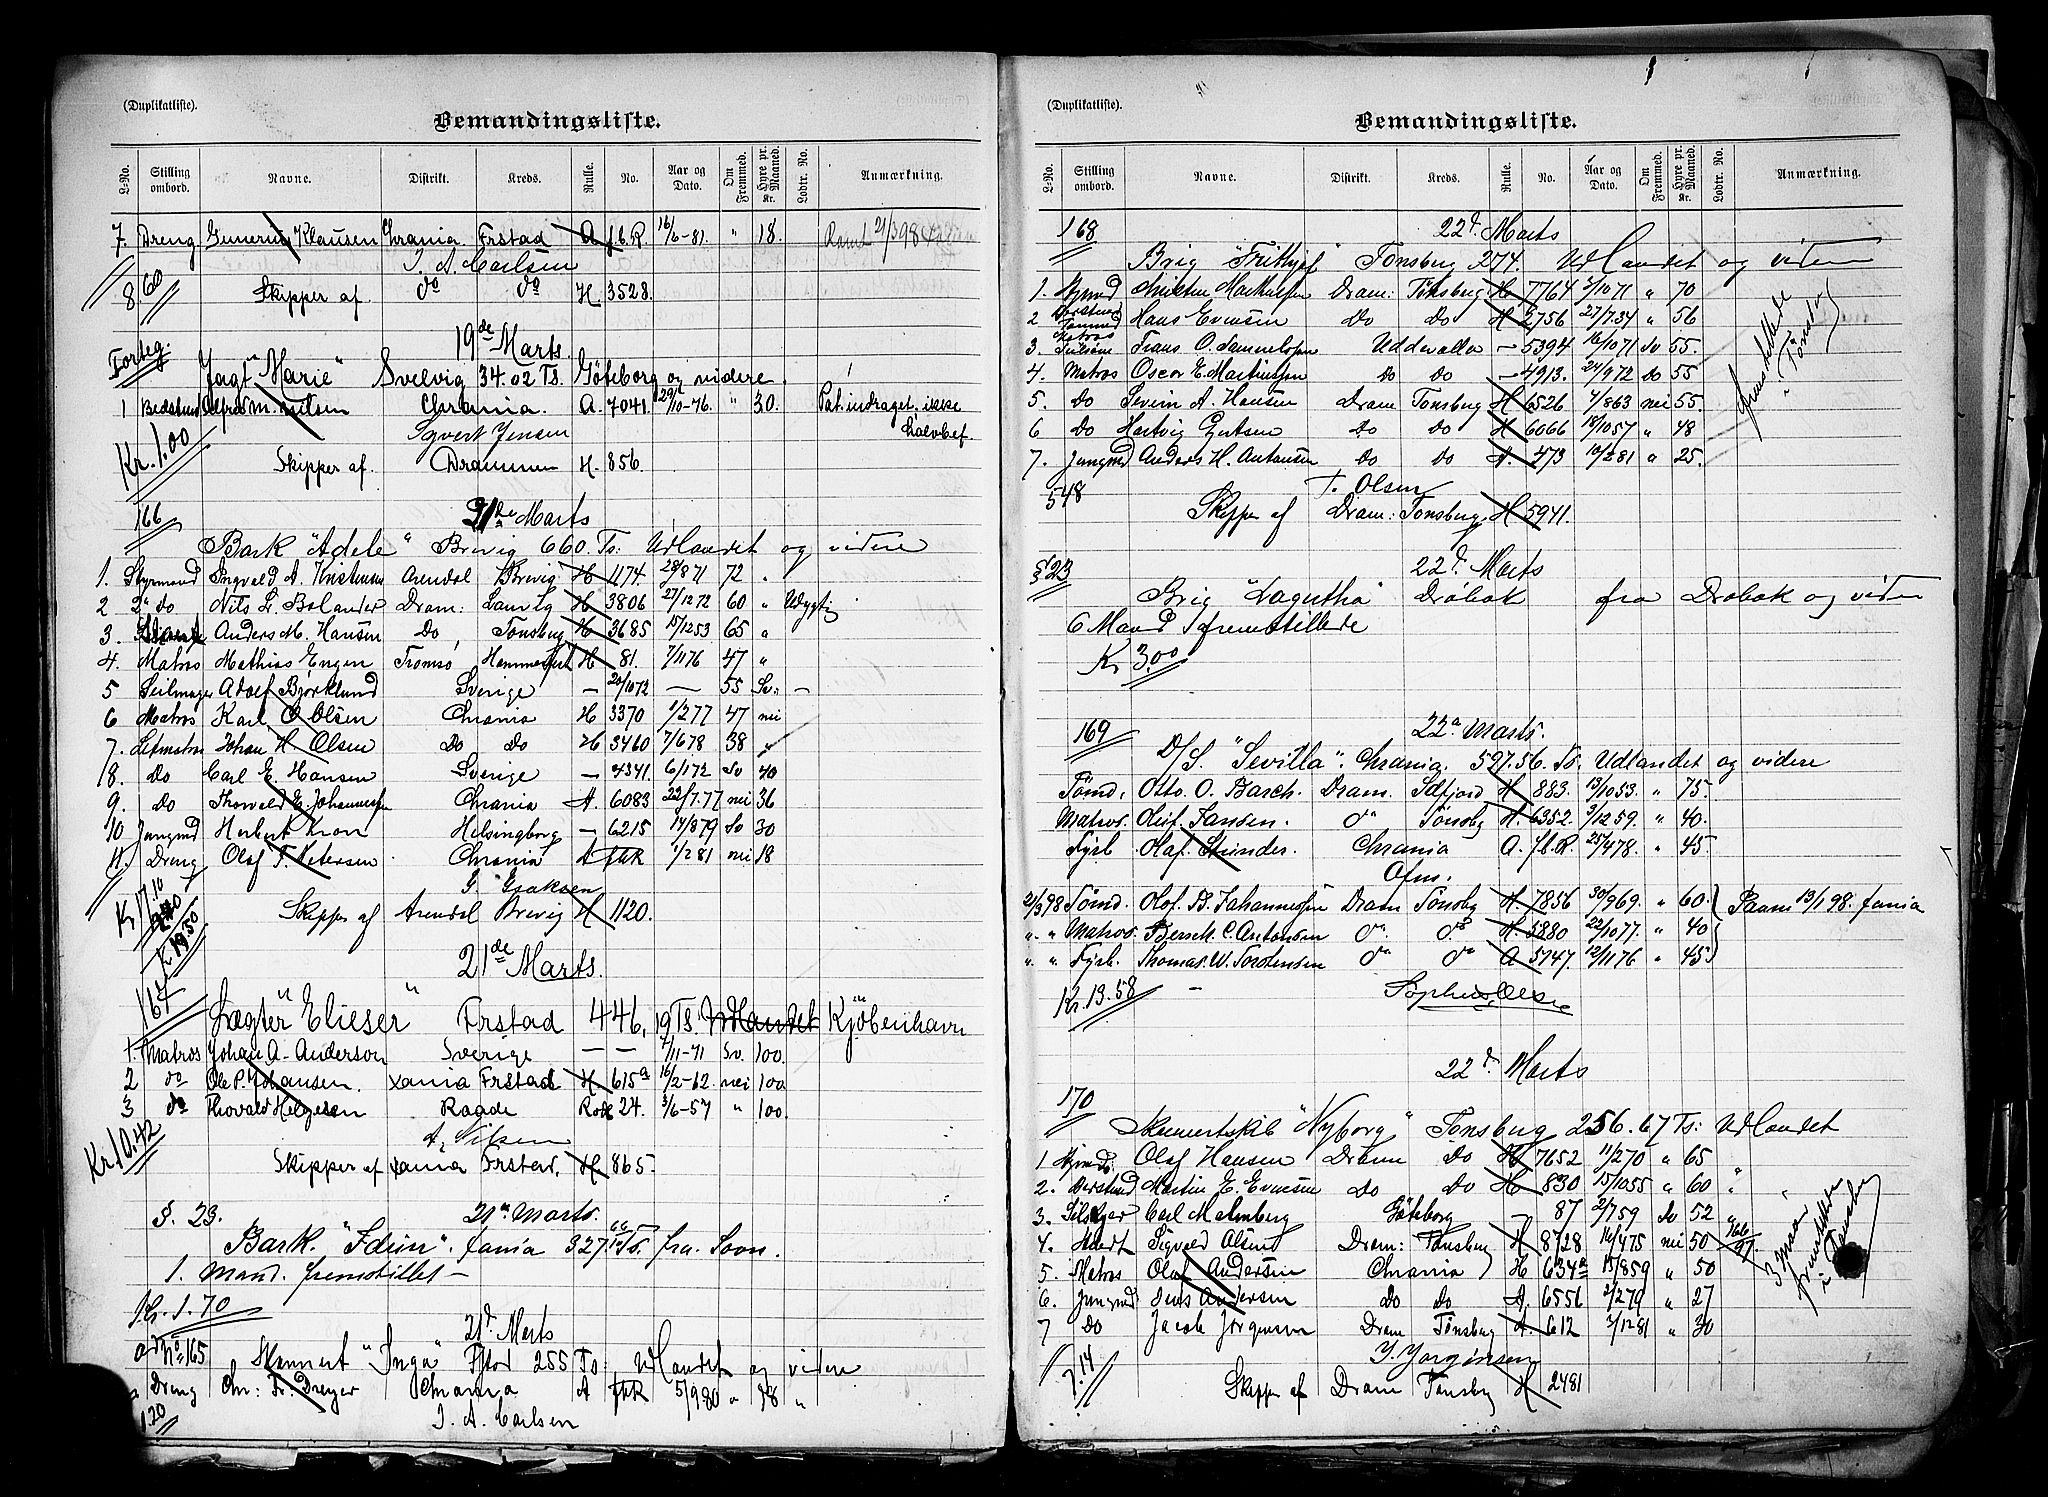 (Duplikatliste).
Bemandingsliste.
L-No. Stilling ombord. Navne. Distrikt. Kreds. Rulle. No. Aar og Dato. Om Fremmed. Hyre pr. Maaned. Kr. Lodtr. No. Anmærkning.
7. Dreng Klausen Chrania Frstad A f.t.R. 16/6-81. " 18. 21/3 98
J. A. Carlsen
8.60 Skipper af do do H. 3528.
19de Marts.
Forteg.
Jagt "Marie" Svelvig 34.02 Ts. Göteborg og videre
1 Bedstmd Alfred M. Nilsen Chrania. A. 7041. 29/10-76. " 30. Pat. indraget. ikke
Kr. 1.00 Syvert Jensen
Skipper af. Drammen H. 856.
166 21de Marts
Bark "Adele" Brevig 660. Ts: Udlandet og videre
1. Styrmand Ingvald A. Kristensen Arendal Brevig H 1174. 29/871 72 "
2 2" do Nils L. Bolander Dram: Laurvig H 3806 27/1272 60 " Udygtig
3. Anders M. Hansen Do Tonsberg H 3685 15/1253 65 "
4. Matros Mathias Engen Tromsö Hammerfest H 81. 7/1176 47 "
5 Seilmager Adolf Björklund Sverige — 20/1072 — 55 Sv: —
6 Matros Karl O. Olsen Chrania H 3370 1/277 47 nei
7. Letmatros Johan H. Olsen Do Do H 3460 7/678 38 "
8. Do Carl E. Hansen Sverige — 4341. 6/172 Sv 40
9. do Thorvald E. Johannessen Chrania A. 6083 22/7.77 nei 36
10 Jungmd Herbert Kron Helsingborg — 6215 14/879 Sv 30
11. Dreng Olaf T. Petersen Chrania A fttR 1/281 nei 18
Kr 17.10 G. Isaksen
2.40 Skipper af Arendal Brevig H 1120.
Kr 19.50
21de Marts.
167
Lægter "Elieser" Frstad 446,19 Ts. Udlandet Kjöbenhavn
1. Matros Johan A. Anderson Sverige — — 7/11-71 Sv. 100.
2 do Ole P. Johansen. Xania Frstad H. 615a 16/2-62. nei 100
3 do Thorvald Helgesen Raade Rode 24. 3/6-57 " 100.
Kr 10.42 A. Nilsen
Skipper af Xania Frstad. H 865.
§. 23. 21de Marts.
Bark. "Idun". Xania 327 Ts. fra. Soon.
1. Mand. fremstillet —
Kr. 1.70
21d Marts
ad No 165 Skonnert "Inga" Fstad 255 Ts: Udlandet og videre
Dreng Chr: Fr. Dreyer Chrania A fttR 5/980 " 18 "
1.20 J. A. Carlsen
(Duplikatliste).
Bemandingsliste.
L-No. Stilling ombord. Navne. Distrikt. Kreds. Rulle. No. Aar og Dato. Om Fremmed. Hyre pr. Maaned. Kr. Lodtr. No. Anmærkning.
168 22d Marts
Brig "Frithjof" Tonsberg 274. Udlandet og videre
1. Styrmd Dram: Tönsberg H 7764 2/1071 " 70
2 Hans Evensen Do Do H 2756 27/734 " 56
3. Frans O. Samuelsson Uddevalla — 5394 16/1071 do 55.
4. Matros Oscar E. Martinsson Do Do — 4913. 24/972 Do 55
5. Do Severin A. Hansen Dram Tonsberg H 6526 4/863 nei 55.
6 Do Hartvig Do Do H 6066 18/1057 " 48
7. Jungmd Anders H. Antonsen Do Do A. 473 10/281 " 25.
fremstillede i Tönsberg
548 T. Olsen
Skipper af Dram: Tonsberg H 5941.
§23 22d Marts
Brig "Dagutha" Dröbak fra Drobak og videre
6 Mand fremstillede
Kr 3.00
169 22d Marts.
D/S. "Sevilla". Chrania. 527.56. Ts. Udlandet og videre
Tömd. Otto. O. Basch. Dram. H 883. 13/1053. " 75.
Matros. Olaf. Jansen. do Tönsbg H. 6352. 3/1259. " 40.
Fyrb Olaf. Chrania A. f.t.R. 25/478. " 45
Ofm.
21/3 98 Tömd. Olof. B. Johannessen Dram Tönsbg H. 7856 30/969. " 60 Paam 13/1 98. Xania
" " Matros. C. Antonsen do do H. 5880 22/1077. " 40
" " Fyrb. Thomas. W. Torstensen do do A 5747. 12/1176 " 45
Kr. 13.58 Sophus Olsen
22d Marts
170
Skonnertskib "Nyborg" Tonsberg 256.67 Ts: Udlandet
1 Olaf Hansen Dram Do H 7652 11/270 " 65
2. Martin E. Evensen Do Do H 830 15/1055 " 60 "
3. Carl Malmberg Göteborg — 87 2/759 do 52 "
4. Sigvald Olsen Dram: Tonsberg H 8728 16/475 nei 50
5. Matros Olaf Andersen Chrania H 634a 15/859 " 50
6. Jungmd Jens Andersen Do Do A. 6556 2/279 " 27
7 Do Jacob Jörgensen Dram Tönsberg A. 612 3/1281 " 30
3 Mand fremstillede i Tönsberg
7.14 J. Jorgensen
Skipper af Dram Tonsberg H 2481